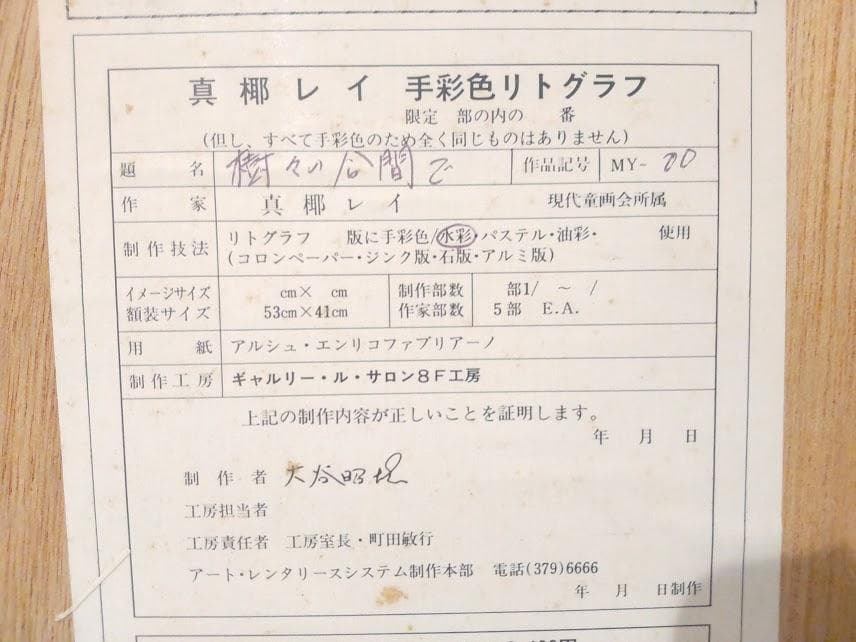 真椰レイ 手彩色リトグラフ
限定 部の内の 番
(但し、すべて手彩色のため全く同じものはありません)
題名 樹々の谷間で 作品記号 MY-00
作家 真椰レイ 現代童画会所属
制作技法 リトグラフ 版に手彩色/水彩・パステル・油彩・ 使用
(コロンペーパー・ジンク版・石版・アルミ版)
イメージサイズ cm× cm 制作部数 部1/ ~ /
額装サイズ 53cm×41cm 作家部数 5部 E.A.
用紙 アルシュ・エンリコファブリアーノ
制作工房 ギャルリー・ル・サロン8F工房
上記の制作内容が正しいことを証明します。
年 月 日
制作者 大谷昭
工房担当者
工房責任者 工房室長・町田敏行
アート・レンタリースシステム制作本部 電話(379)6666
年 月 日制作